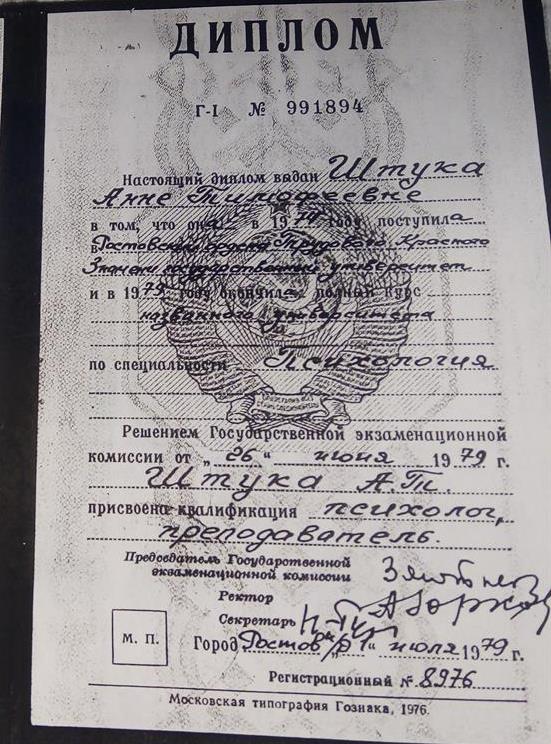 ДИПЛОМ
Г-I № 991894
Настоящий диплом выдан Штука
Анне Тимофеевне
в том, что она в 1974 году поступила
в Ростовский ордена Трудового Красного
Знамени государственный университет
и в 1979 году окончила полный курс
названного университета
по специальности Психология
Решением Государственной экзаменационной
комиссии от „26“ июня 1979 г.
Штука А.Т.
присвоена квалификация психолог,
преподаватель.
Председатель Государственной
экзаменационной комиссии
Ректор
Секретарь
М. П.
Город Ростов н/Д „1“ июля 1979 г.
Регистрационный № 8976
Московская типография Гознака, 1976.